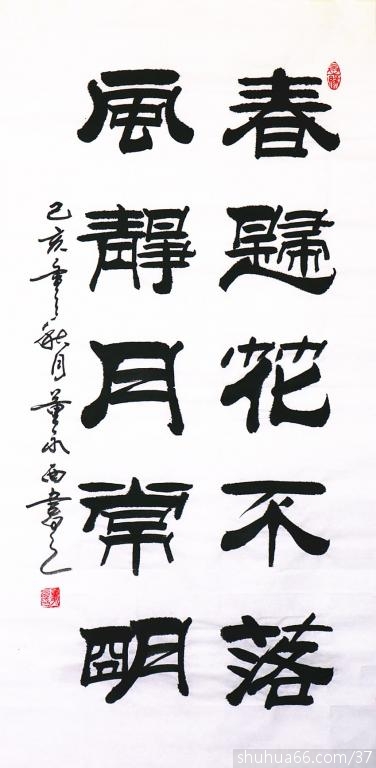 春歸花不落
風靜月常明
己亥年之秋月董永西書之
shuhua66.com/37